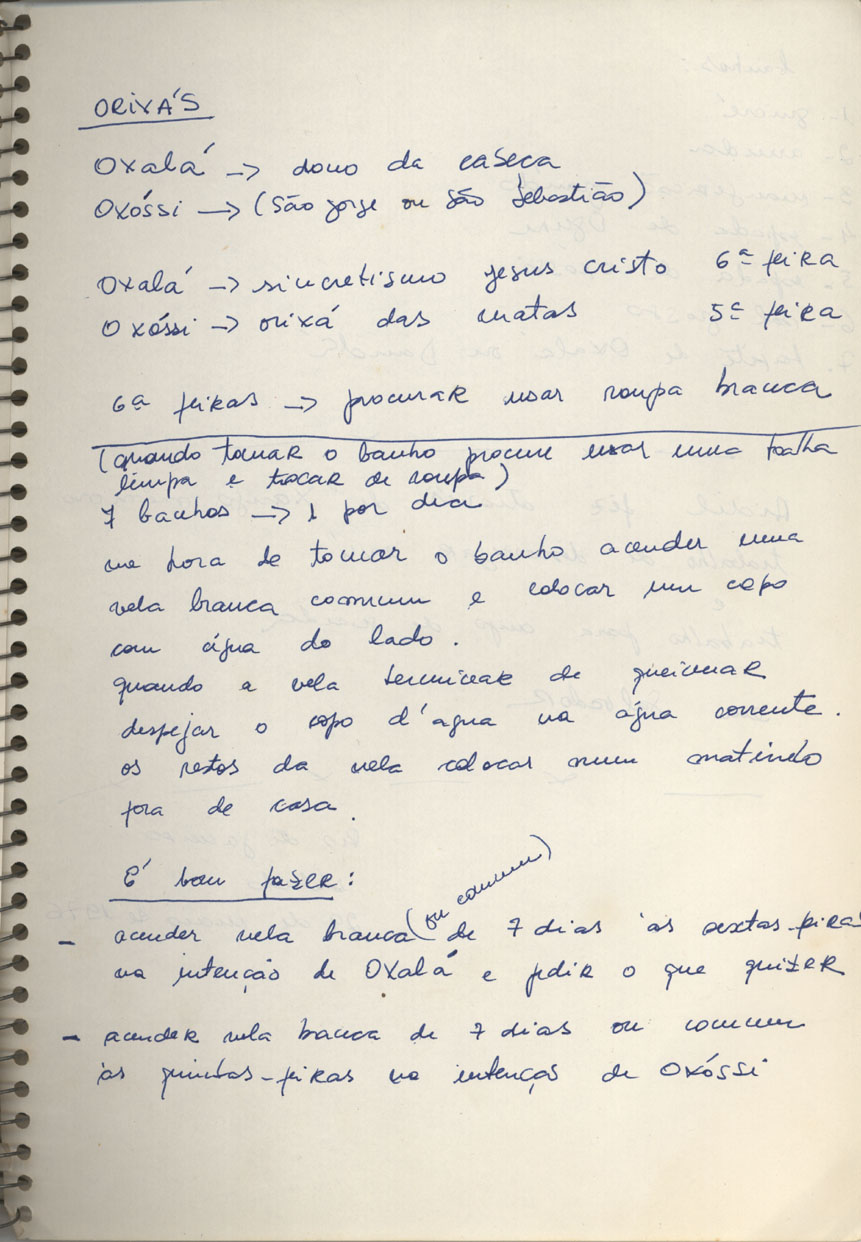 ORIXÁ'S
Oxalá -> dono da cabeça
Oxóssi -> (São Jorge ou São Sebastião)
Oxalá -> sincretismo Jesus Cristo 6ª feira
Oxóssi -> orixá das matas 5ª feira
6ª feiras -> procurar usar roupa branca
(quando tomar o banho procure usar uma toalha
limpa e trocar de roupa)
7 banhos -> 1 por dia
na hora de tomar o banho acender uma
vela branca comum e colocar um copo
com água do lado.
quando a vela terminar de queimar
despejar o copo d'agua na água corrente.
os restos da vela colocar num matinho
fora de casa.
É bom fazer:
- acender vela branca (ou comum) de 7 dias às sextas-feiras
na intenção de Oxalá e pedir o que quizer
- acender vela branca de 7 dias ou comum
às quintas-feiras na intenção de Oxóssi